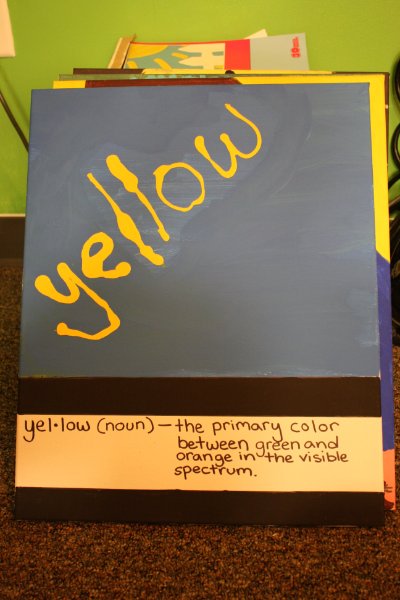 yellow
yel•low (noun) — the primary color
between green and
orange in the visible
spectrum.